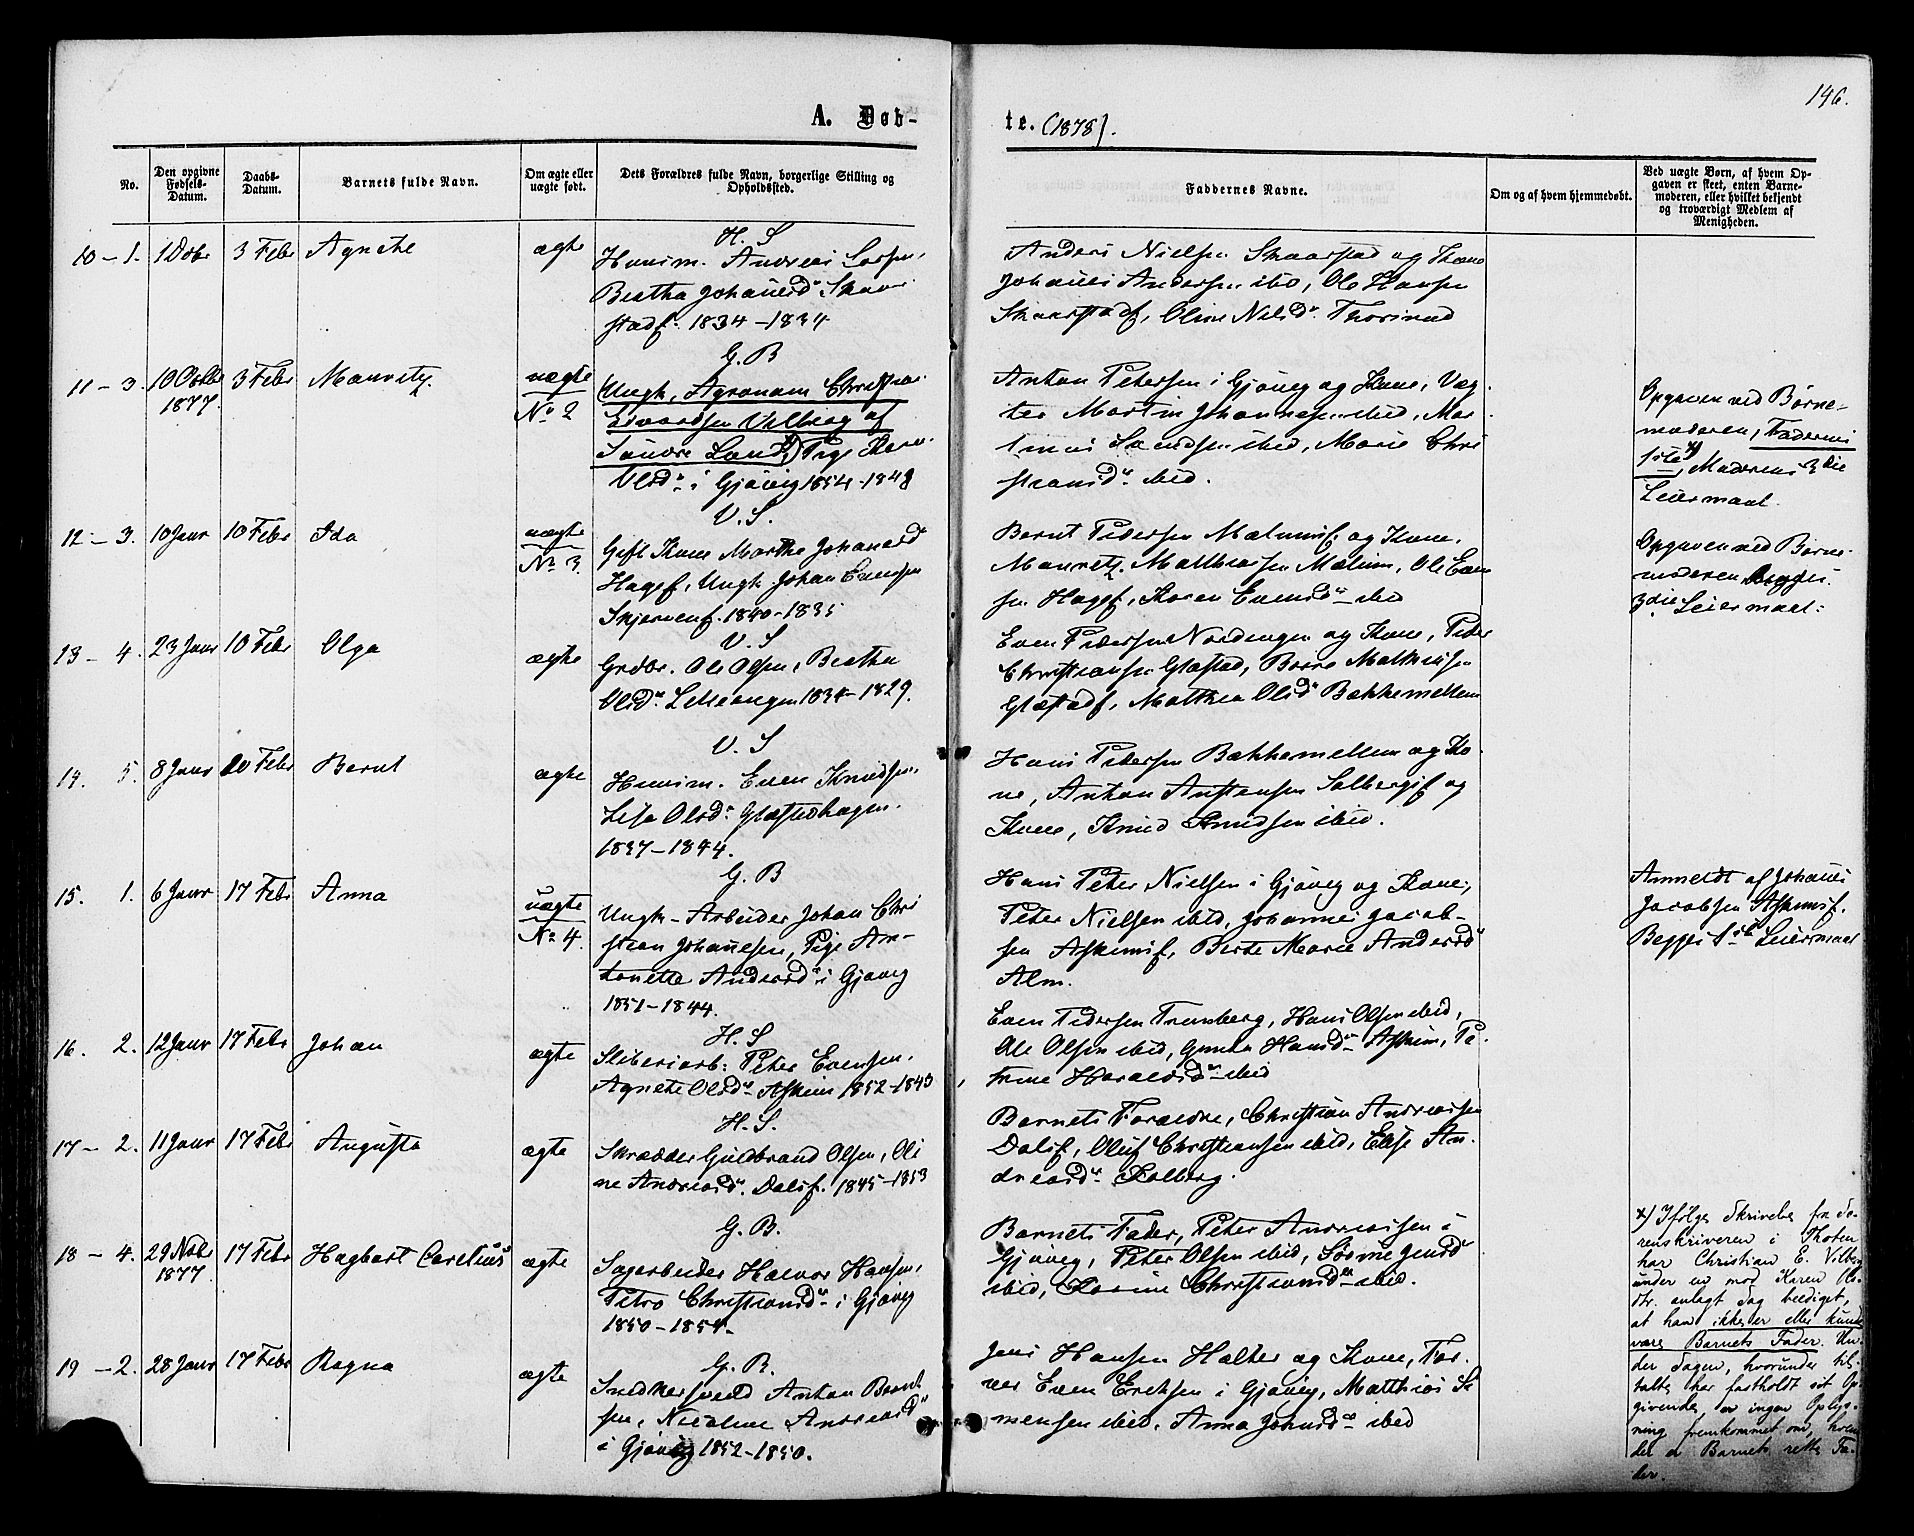 146.
A. Døb-
te. (1878).
No.
Den opgivne Fødsels-Datum.
Daabs-Datum.
Barnets fulde Navn.
Om ægte eller uægte født.
Dets Forældres fulde Navn, borgerlige Stilling og Opholdssted.
Faddernes Navne.
Om og af hvem hjemmedøbt.
Ved uægte Børn, af hvem Opgaven er skeet, enten Barnemoderen, eller hvilket bekjendt og troværdigt Medlem af Menigheden.
10 – 1. 3 Febr Agnethe ægte
H. S
Huusm. Andreas
Bertha Johannesd
1834–1834
Anders Nielsen Skaarstad og Kone
Johannes Andersen ibd, Ole Hansen
11 – 3. 10 Octbr 1877. 3 Febr Mauritz uægte No 2
G. B
Ungk. Agronom
Vilberg af
Søndre Land x) Pige Karen
Olsd. i Gjøvig 1854–1848
Anton Petersen i Gjøvig og Kone,
Martin Johannesen ibid,
ibid, Marie Chri
stiansd ibid.
Opgaven ved Barne-
moderen, Faderens
1ste x), Moderens 3die
Leiermaal.
12 – 3. 10 Janr 10 Febr Ida uægte No 3.
V. S.
Gift Kone Marthe Johannesd
Ungk. Johan Evensen
1840–1835
Bernt Pedersen og Kone,
Mauritz Mathiassen Mælum, Ole Even
sen Karen Evensd ibid
Opgaven ved Barne-
moderen Begges
3die Leiermaal.
13 – 4. 23 Janr 10 Febr Olga ægte
V. S
Grdbr. Ole Olsen, Bertha
Olsd. 1834–1829.
Even Pedersen Nordengen og Kone, Peder
Christiansen Glæstad,
Olsd Bækkemellem
14. 5. 8 Janr 10 Febr Bernt ægte
V. S
Huusm. Even Knudsen,
Lisa Olsd. Glæstadhagen.
1837–1844.
Hans Pedersen Bækkemellem og Ko-
ne, Anton og
Kone, Knud Knudsen ibid.
15. 1. 6 Janr 17 Febr Anna uægte No 4.
G. B
Ungk. Arbeider Johan Chri
stian Johannesen, Pige An-
tonette Andersd i Gjøvig
1851–1844.
Hans Peter Nielsen i Gjøvig og Kone,
Peter Nielsen ibid, Johannes Jacob-
sen Berte Marie Andersd
Alm.
Anmeldt af Johannes
Jacobsen
Begges 1ste Leiermaal
16. 2. 12 Janr 17 Febr Johan ægte
H. S
Peter Evensen,
Agnete Olsd Askim 1852–1843
Even Pedersen Hans Olsen ibid,
Ole Olsen ibid, Hansd Askim, Pe-
trine Haraldsd ibid
17 – 2. 11 Janr 17 Febr Augusta ægte
H. S.
Skrædder Guldbrand Olsen, Oli
ne Andreasd. 1845–1853
Barnets Forældre, Christian Andreassen
Oluf Christiansen ibid, Elise An-
dreasd Kolberg.
18 – 4. 29 Novbr 1877. 17 Febr Hagbart Carelius ægte
G. B.
Sagarbeider Halvor Hansen,
Petra Christiansd i Gjøvig
1850–1854.
Barnets Fader, Peter Andreassen i
Gjøvig, Peter Olsen ibid,
ibid, Karine Christiansd ibid.
x) Ifølge Skrivelse fra So-
renskriveren i Thoten
har Christian E. Vilberg
under en mod Karen Ols-
dtr. anlagt Sag beediget,
at han ikke er eller kunde
være Barnets Fader. Un-
der Sagen, hvorunder til-
talte har fastholdt sit Op-
givende er ingen Oplys-
ning fremkommet om, hvem
der er Barnets rette Fa-
der.
19 – 2. 28 Janr 17 Febr Ragna ægte
G. B.
Snedkersvend Anton Bernt
sen, Nicoline Andreasd
i Gjøvig 1852–1850.
Jens Hansen Halter og Kone,
Even Eriksen i Gjøvig, Matthias Si
mensen ibid, Anna Johnsd ibid